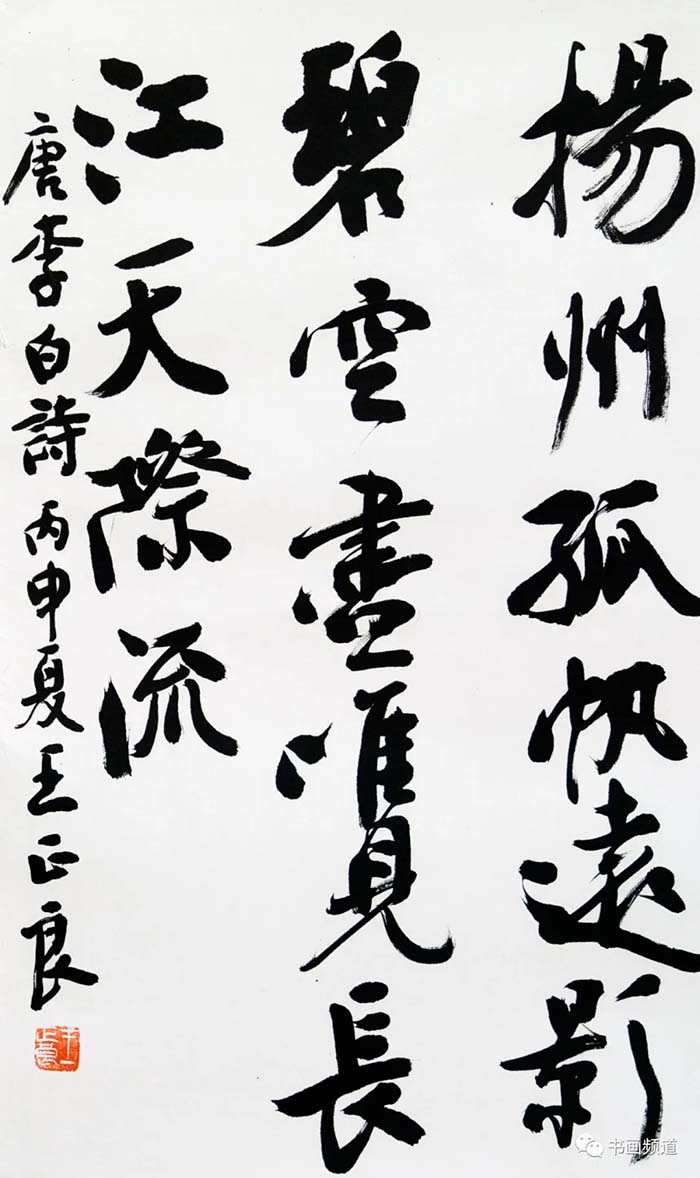 揚州孤帆遠影
碧空盡唯見長
江天際流
唐李白詩丙申夏王正良
书画频道